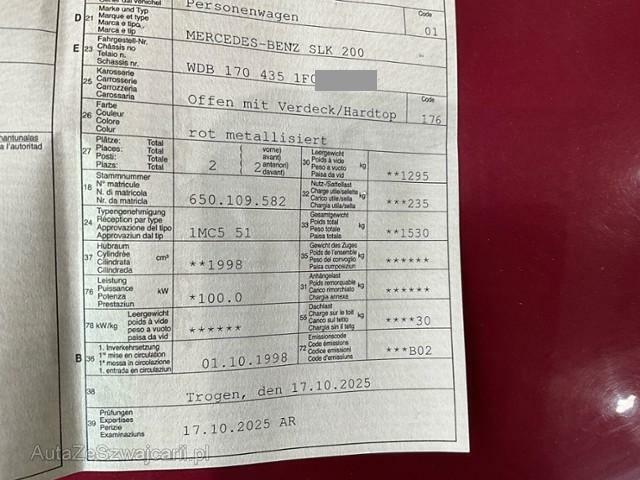 Genar dal vehichel Personenwagen
D 21 Marke und Typ
Marque et type
Marca e tipo
Marca e tip
MERCEDES-BENZ SLK 200
Code
01
E 23 Fahrgestell-Nr.
Châssis no
Telaio n.
Schassis nr.
WDB 170 435 1F
25 Karosserie
Carrosserie
Carrozzeria
Carossaria
Offen mit Verdeck/Hardtop
Code
176
26 Farbe
Couleur
Colore
Colur
rot metallisiert
27 Plätze: Total
Places: Total
Posti: Totale
Plazs: Total
2
( vorne)
( avant)
2 anteriori)
( davant)
30 Leergewicht
Poids à vide
Peso a vuoto
Paisa da vid
kg
**1295
18 Stammnummer
N° matricule
N. di matricola
Nr. da matricla
650.109.582
32 Nutz-/Sattellast
Charge utile/sellette
Carico utile/sella
Chargia utila/sella
kg
***235
24 Typengenehmigung
Réception par type
Approvazione del tipo
Approvaziun dal tip
1MC5 51
33 Gesamtgewicht
Poids total
Peso totale
Paisa totala
kg
**1530
37 Hubraum
Cylindrée
Cilindrata
Cilindrada
cm³
**1998
35 Gewicht des Zuges
Poids de l'ensemble
Peso del convoglio
Paisa cumposiziun
kg
******
76 Leistung
Puissance
Potenza
Prestaziun
kW
*100.0
31 Anhängelast
Poids remorquable
Carico rimorchiato
Chargia annexa
kg
******
78 kW/kg Leergewicht
poids à vide
peso a vuoto
paisa da vid
******
55 Dachlast
Charge sur le toit
Carico sul tetto
Chargia sin il tetg
kg
****30
B 36 1. Inverkehrsetzung
1re mise en circulation
1a messa in circolazione
1. entrada en circulaziun
01.10.1998
72 Emissionscode
Code émissions
Codice emissioni
Code d'emissiuns
***B02
38
Trogen, den 17.10.2025
39 Prüfungen
Expertises
Perizie
Examinaziuns
17.10.2025 AR
AutaZeSzwajcarii.pl